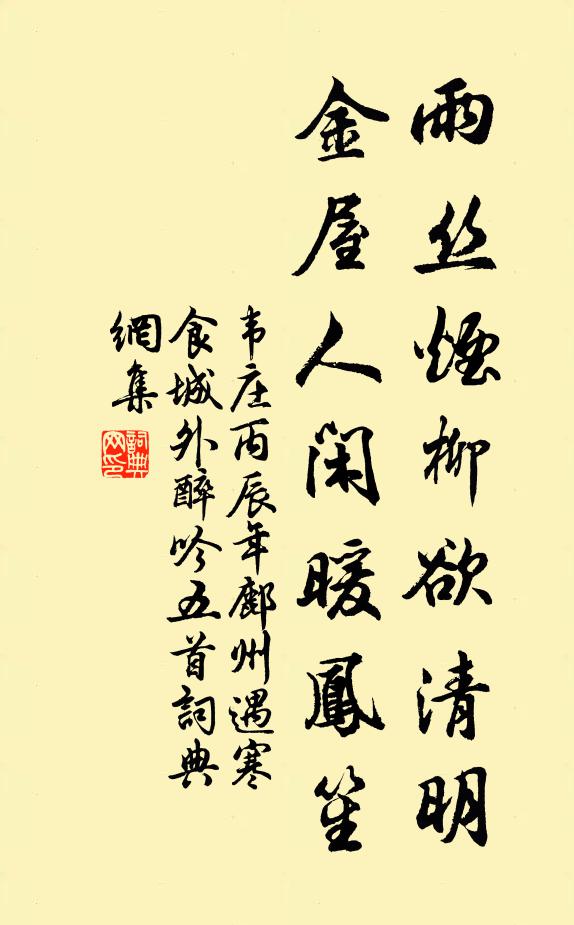 雨丝煙柳欲清明
金屋人闲暖鳳笙
韦庄丙辰年鄜州遇寒
食城外醉吟五首詞典
網集
詞典
网印